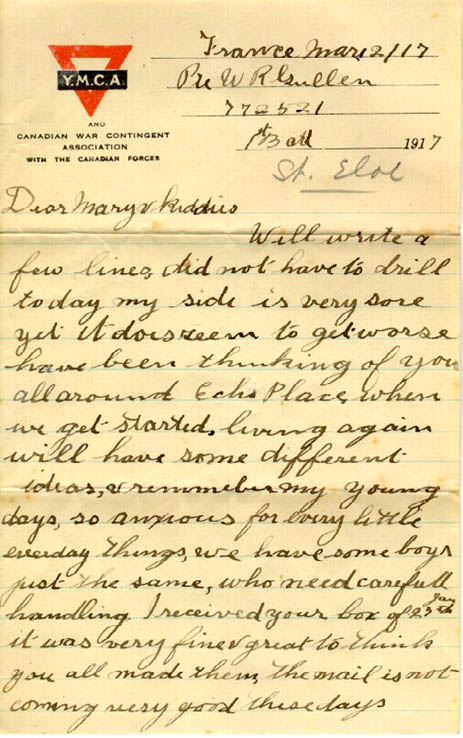 France Mar 12/17
Y.M.C.A.
Pte W R Gullen
772521
AND
CANADIAN WAR CONTINGENT
ASSOCIATION
WITH THE CANADIAN FORCES
1st Batt 1917
St. Eloi
Dear Mary & Kiddies
Will write a
few lines, did not have to drill
today my side is very sore
yet it does seem to get worse
have been thinking of you
all around Echo Place, when
we get started, living again
will have some different
ideas, & remember my young
days, so anxious for every little
everday things, we have some boys
just the same, who need carefull
handling. I received your box of Jan 25th
it was very fine & great to think
you all made them, the mail is not
coming very good these days